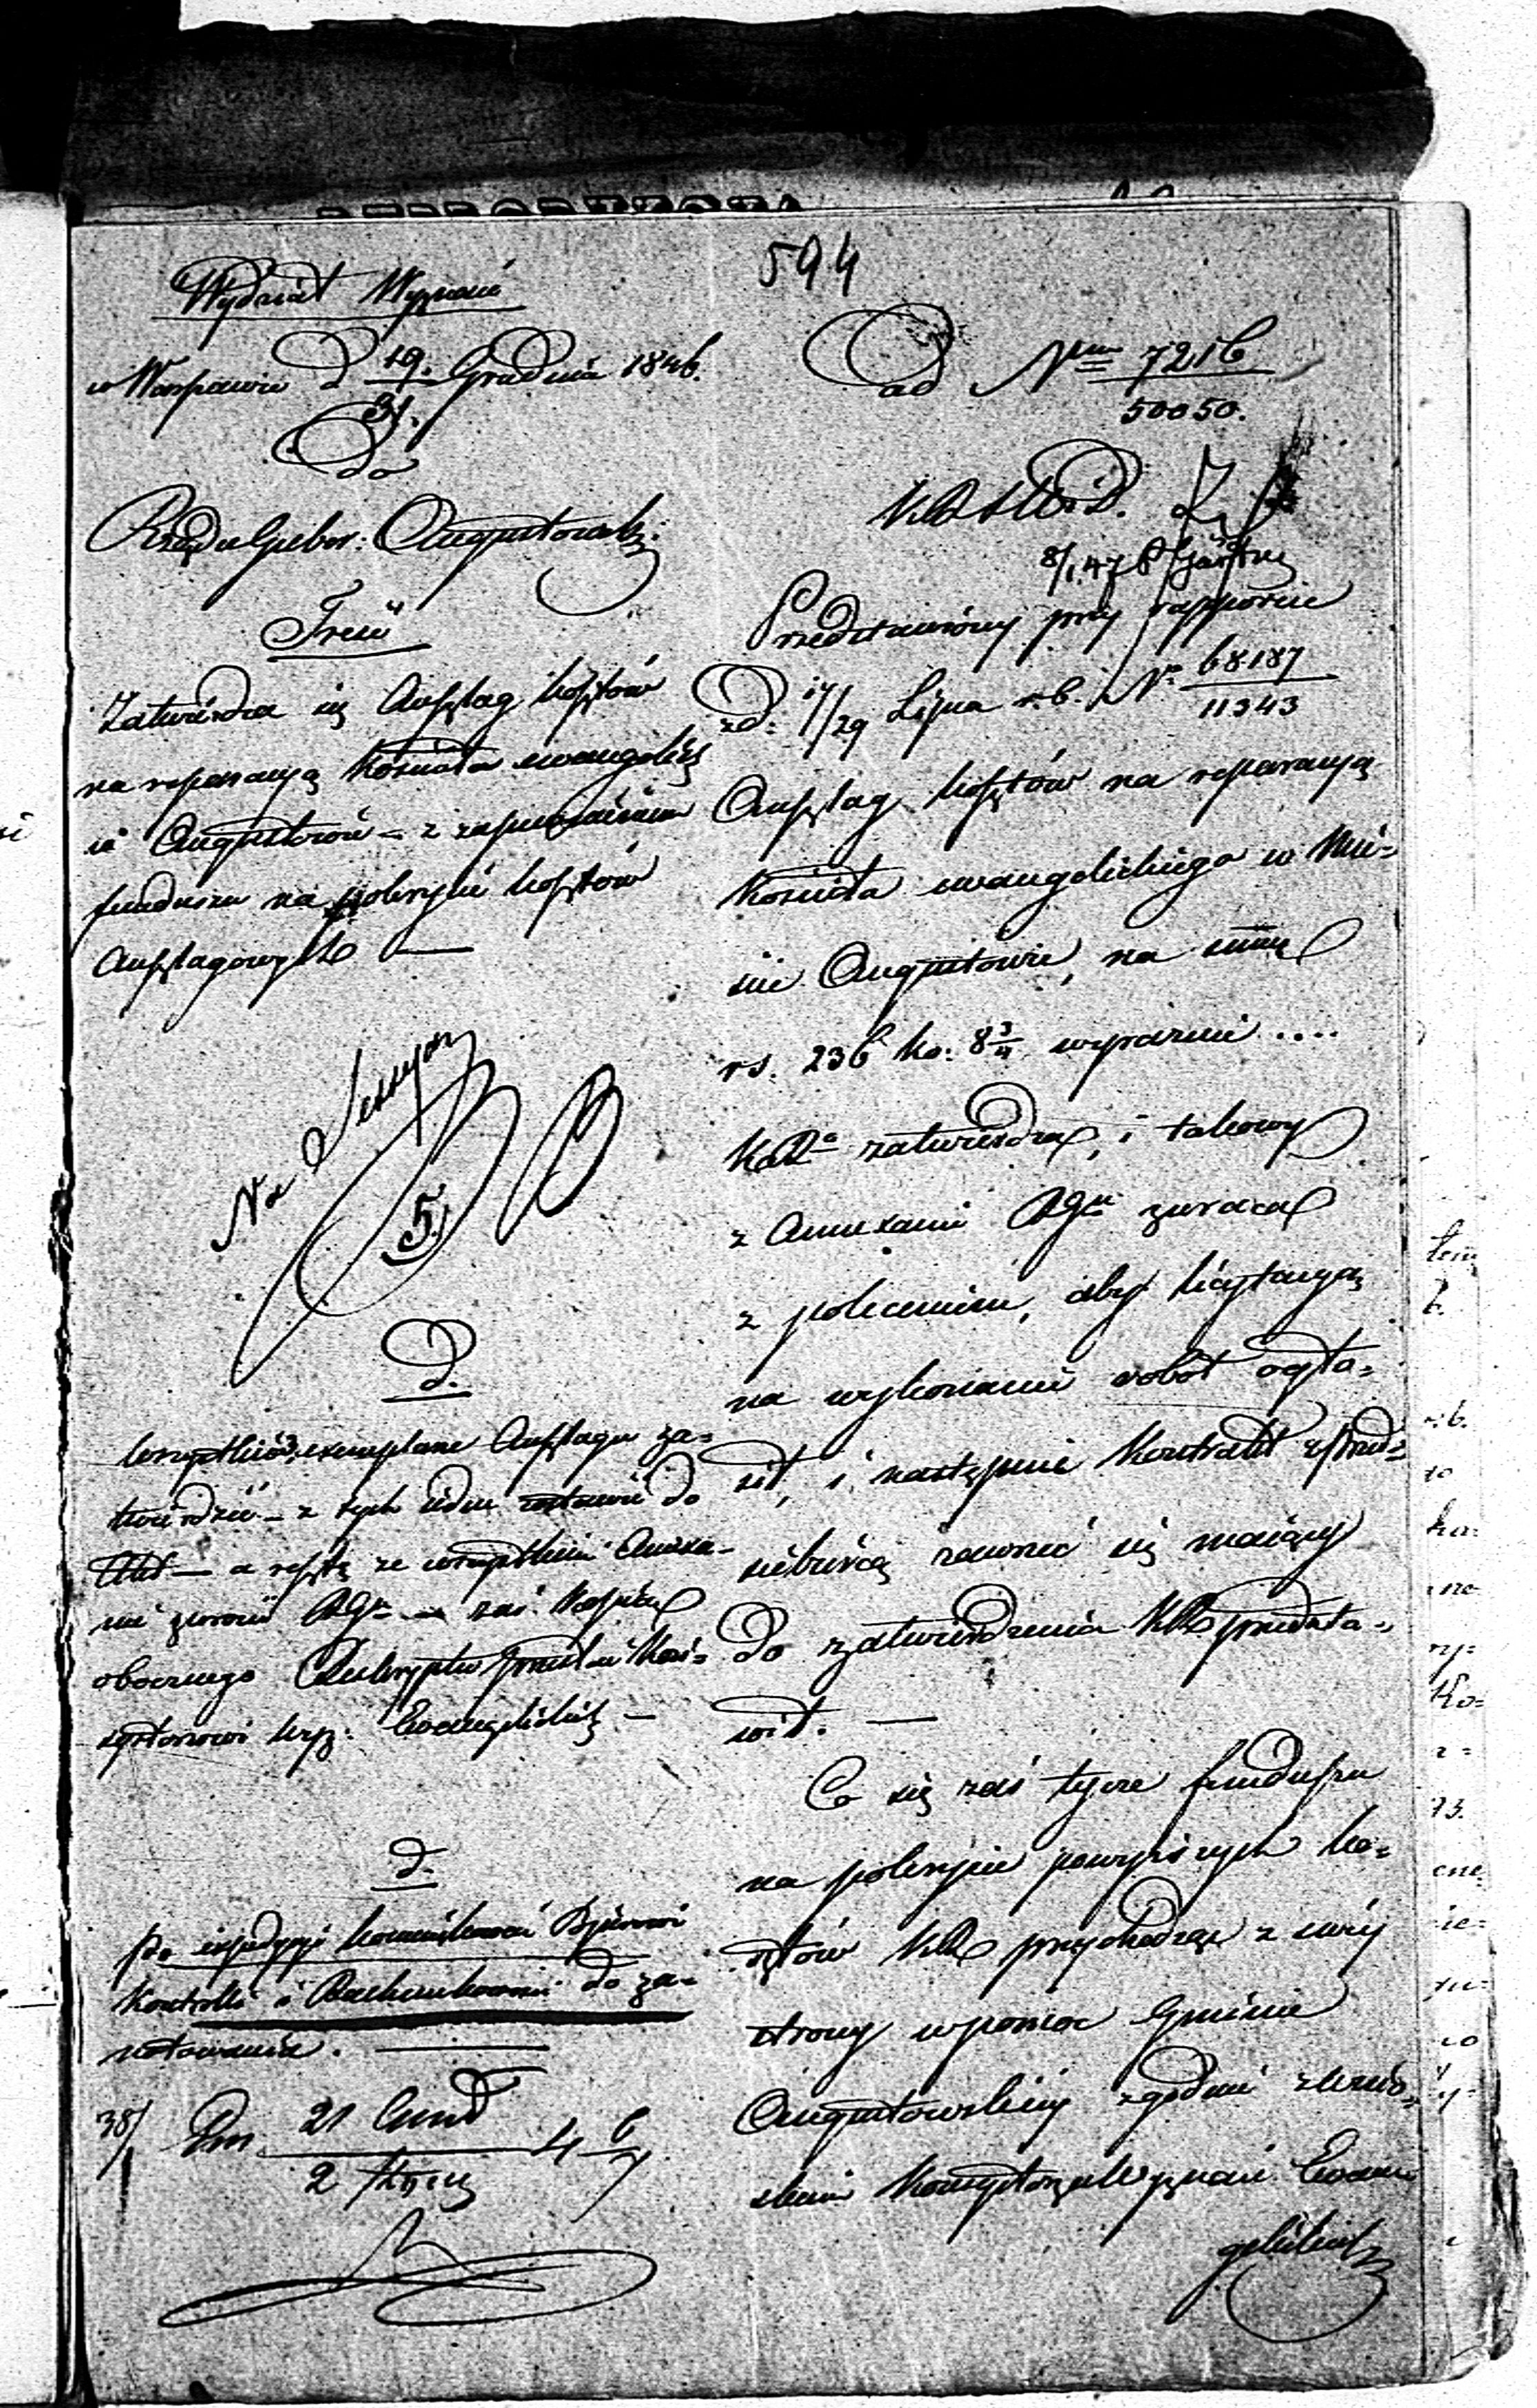 594
Wydział Wyznań
w Warszawie d 19. Grudnia 1846.
31.
Do
Rządu Guber: Augustowsk:
Treść
Zatwierdza się Anszlag kosztów
na reparacyą Kościoła ewangelick
w Augustowie – z zapewnieniem
funduszu na pokrycie kosztów
Anszlagowych —
Na Sessyą
5.
D.
wszystkie exemplarze Anszlagu za=
twierdzić – z tych jeden zostawić do
Akt — a resztę ze wszystkiemi Annexa-
mi zwrócić RGu — zaś Kopią
obocznego Reskryptu przesłać Kon=
systorzowi wyz: Ewangelickich —
d.
po expedycyi kommunikować Bjurowi
Kontrolli i Rachunkowości do za=
notowania. —
38/
21
2
ad Nrum 7216
50050.
K.R.S.W.i D.
8/1 47
Przedstawiony przy rapporcie
z d: 17/29 Lipca r.b. No 68187
11343
Anszlag kosztów na reparacyą
Kościoła ewangelickiego w Mie=
ście Augustowie, na summę
rs. 236 ko: 8¾ wyraźnie ....
KRa zatwierdza, i takowy
z Annexami RGu zwraca
z poleceniem, aby licytacyą
na wykonanie robót ogło=
sił, i następnie Kontrakt z przed=
siębiorcą zawrzeć się maiący
do zatwierdzenia KR przedsta=
wił. —
Co się zaś tycze funduszu
na pokrycie powyższych ko=
sztów KR przychodząc z swéj
strony w pomoc Gminie
Augustowskiéj zgodnie z wnio=
skiem Konsystorza Wyznań Ewan=
gelickich